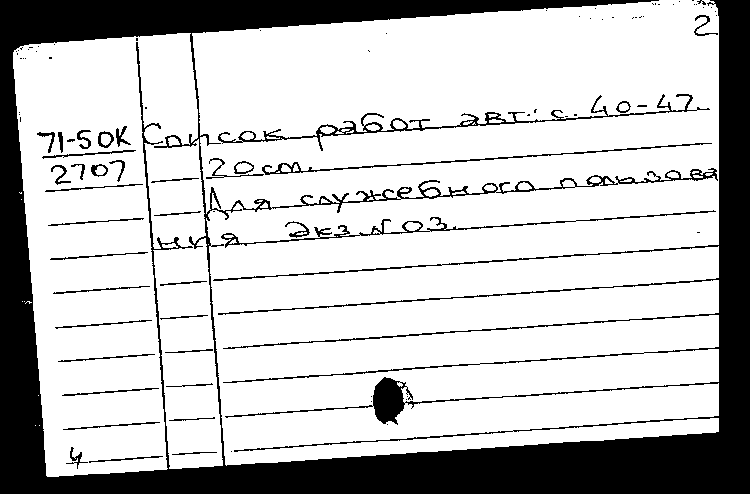 2
71-50К Список работ авт.: с. 40-47.
2707 20см.
Для служебного пользова
ния. Экз.N03.
4